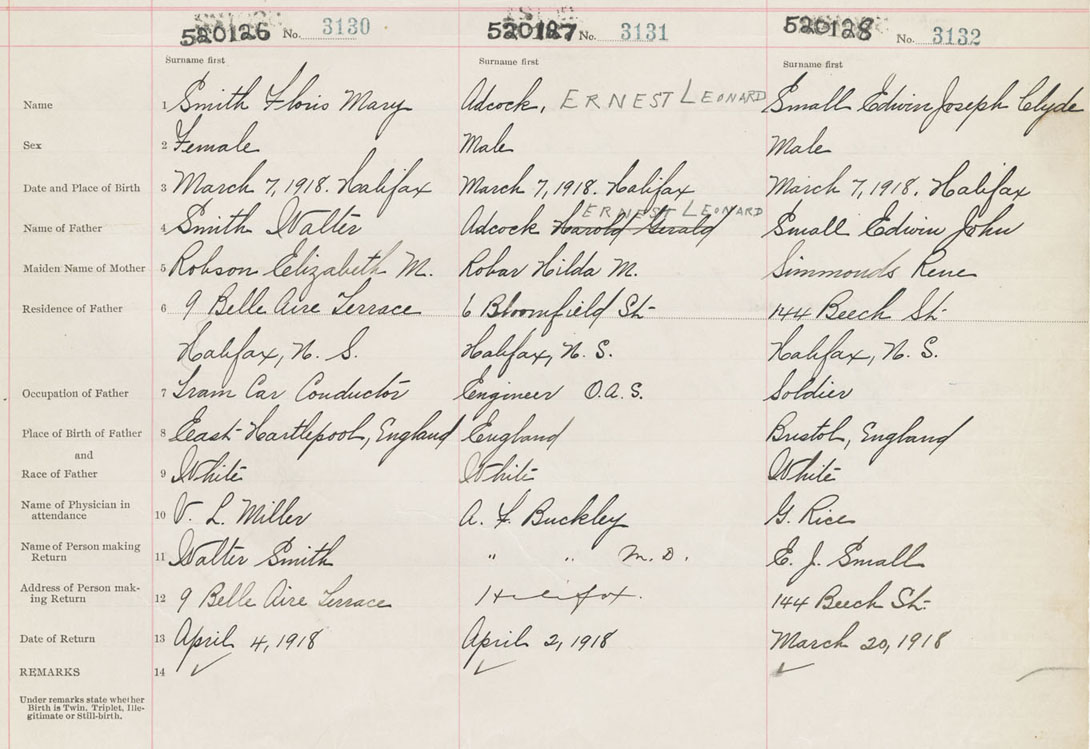 520126 No. 3130
520127 No. 3131
520128 No. 3132
Surname first
Surname first
Surname first
Name 1 Smith Floris Mary Adcock, ERNEST LEONARD Small Edwin Joseph Clyde
Sex 2 Female Male Male
Date and Place of Birth 3 March 7, 1918. Halifax March 7, 1918. Halifax March 7, 1918. Halifax
ERNEST LEONARD
Name of Father 4 Smith Walter Adcock Harold Gerald Small Edwin John
Maiden Name of Mother 5 Robson Elizabeth M. Robar Hilda M. Simmonds Rene
Residence of Father 6 9 Belle Aire Terrace 6 Bloomfield St. 144 Beech St.
Halifax, N. S. Halifax, N. S. Halifax, N. S.
Occupation of Father 7 Tram Car Conductor Engineer O.A.S. Soldier
Place of Birth of Father 8 East Hartlepool, England England Bristol, England
and
Race of Father 9 White White White
Name of Physician in
attendance 10 V. L. Miller A. F. Buckley G. Rice
Name of Person making
Return 11 Walter Smith " " M. D. E. J. Small
Address of Person mak-
ing Return 12 9 Belle Aire Terrace Halifax. 144 Beech St.
Date of Return 13 April 4, 1918 April 2, 1918 March 20, 1918
REMARKS 14 ✓ ✓ ✓
Under remarks state whether
Birth is Twin, Triplet, Ille-
gitimate or Still-birth.